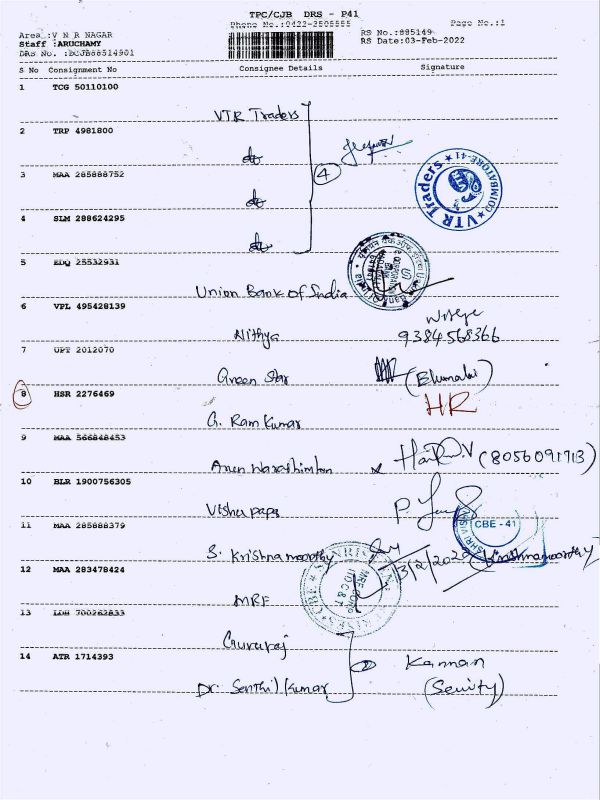 TPC/CJB DRS - P41
Phone No.:0422-2505555
Page No.:1
Area :V N R NAGAR
RS No.:885149
Staff :ARUCHAMY
RS Date:03-Feb-2022
DRS No. :BCJB88514901
S No Consignment No Consignee Details Signature
1 TCG 50110100
VTR Traders
2 TRP 4981800
do
4
3 MAA 285888752
do
VTR Traders ★ COIMBATORE-41 ★
4 SLM 288624295
do
5 EDQ 25532931
Union Bank of India
6 VPL 495428139
Nithya 9384568366
7 UPT 2012070
Green Star
8 HSR 2276469
HR
G. Ram Kumar
9 MAA 566848453
(8056091713)
10 BLR 1900756305
CBE - 41
11 MAA 285888379
S. Krishnamoorthy
Krishnamoorthy
12 MAA 283478424
MRF
13 IDB 700262833
Gururaj
14 ATR 1714393
2
Kannan
Dr. Senthil Kumar